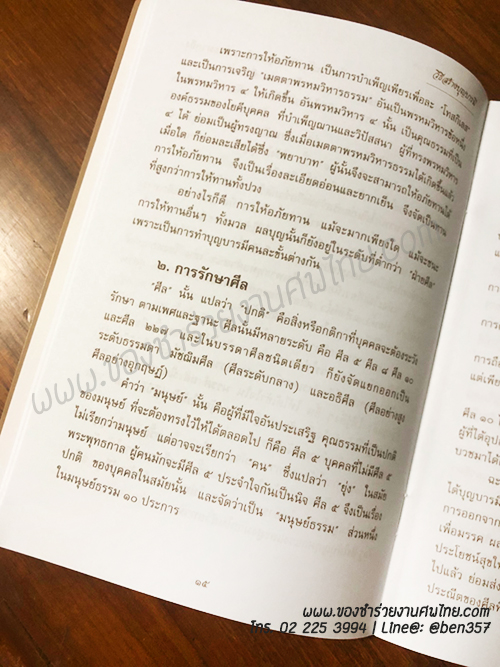 วิธีสร้างบุญบารมี
เพราะการให้อภัยทาน เป็นการบำเพ็ญเพียรเพื่อละ "โทสกิเลส"
และเป็นการเจริญ "เมตตาพรหมวิหารธรรม" อันเป็นพรหมวิหารข้อหนึ่ง
ในพรหมวิหาร ๔ ให้เกิดขึ้น อันพรหมวิหาร ๔ นั้น เป็นคุณธรรมที่เป็น
องค์ธรรมของโยคีบุคคล ที่บำเพ็ญฌานและวิปัสสนา ผู้ที่ทรงพรหมวิหาร
๔ ได้ ย่อมเป็นผู้ทรงฌาณ ซึ่งเมื่อเมตตาพรหมวิหารธรรมได้เกิดขึ้นแล้ว
เมื่อใด ก็ย่อมละเสียได้ซึ่ง "พยาบาท" ผู้นั้นจึงจะสามารถให้อภัยทานได้
การให้อภัยทาน จึงเป็นเรื่องละเอียดอ่อนและยากเย็น จึงจัดเป็นทาน
ที่สูงกว่าการให้ทานทั้งปวง
อย่างไรก็ดี การให้อภัยทาน แม้จะมากเพียงใด แม้จะชนะ
การให้ทานอื่นๆ ทั้งมวล ผลบุญนั้นก็ยังอยู่ในระดับที่ต่ำกว่า "ฝ่ายศีล"
เพราะเป็นการทำบุญบารมีคนละขั้นต่างกัน
๒. การรักษาศีล
"ศีล" นั้น แปลว่า "ปกติ" คือสิ่งหรือกติกาที่บุคคลจะต้องระวัง
รักษา ตามเพศและฐานะ ศีลนั้นมีหลายระดับ คือ ศีล ๕ ศีล ๘ ศีล ๑๐
และศีล ๒๒๗ และในบรรดาศีลชนิดเดียว ก็ยังจัดแยกออกเป็น
ระดับธรรมดา มัชฌิมศีล (ศีลระดับกลาง) และอธิศีล (ศีลอย่างสูง
ศีลอย่างอุกฤษฏ์)
คำว่า "มนุษย์" นั้น คือผู้ที่มีใจอันประเสริฐ คุณธรรมที่เป็นปกติ
ของมนุษย์ ที่จะต้องทรงไว้ให้ได้ตลอดไป ก็คือ ศีล ๕ บุคคลที่ไม่มีศีล ๕
ไม่เรียกว่ามนุษย์ แต่อาจจะเรียกว่า "คน" ซึ่งแปลว่า "ยุ่ง" ในสมัย
พระพุทธกาล ผู้คนมักจะมีศีล ๕ ประจำใจกันเป็นนิจ ศีล ๕ จึงเป็นเรื่อง
ปกติ ของบุคคลในสมัยนั้น และจัดว่าเป็น "มนุษย์ธรรม" ส่วนหนึ่ง
ในมนุษย์ธรรม ๑๐ ประการ
๑๕
www.ของชำร่วยงานศพไทย.com
www.ของชำร่วยงานศพไทย.com
โทร. 02 225 3994 | Line@: @ben357